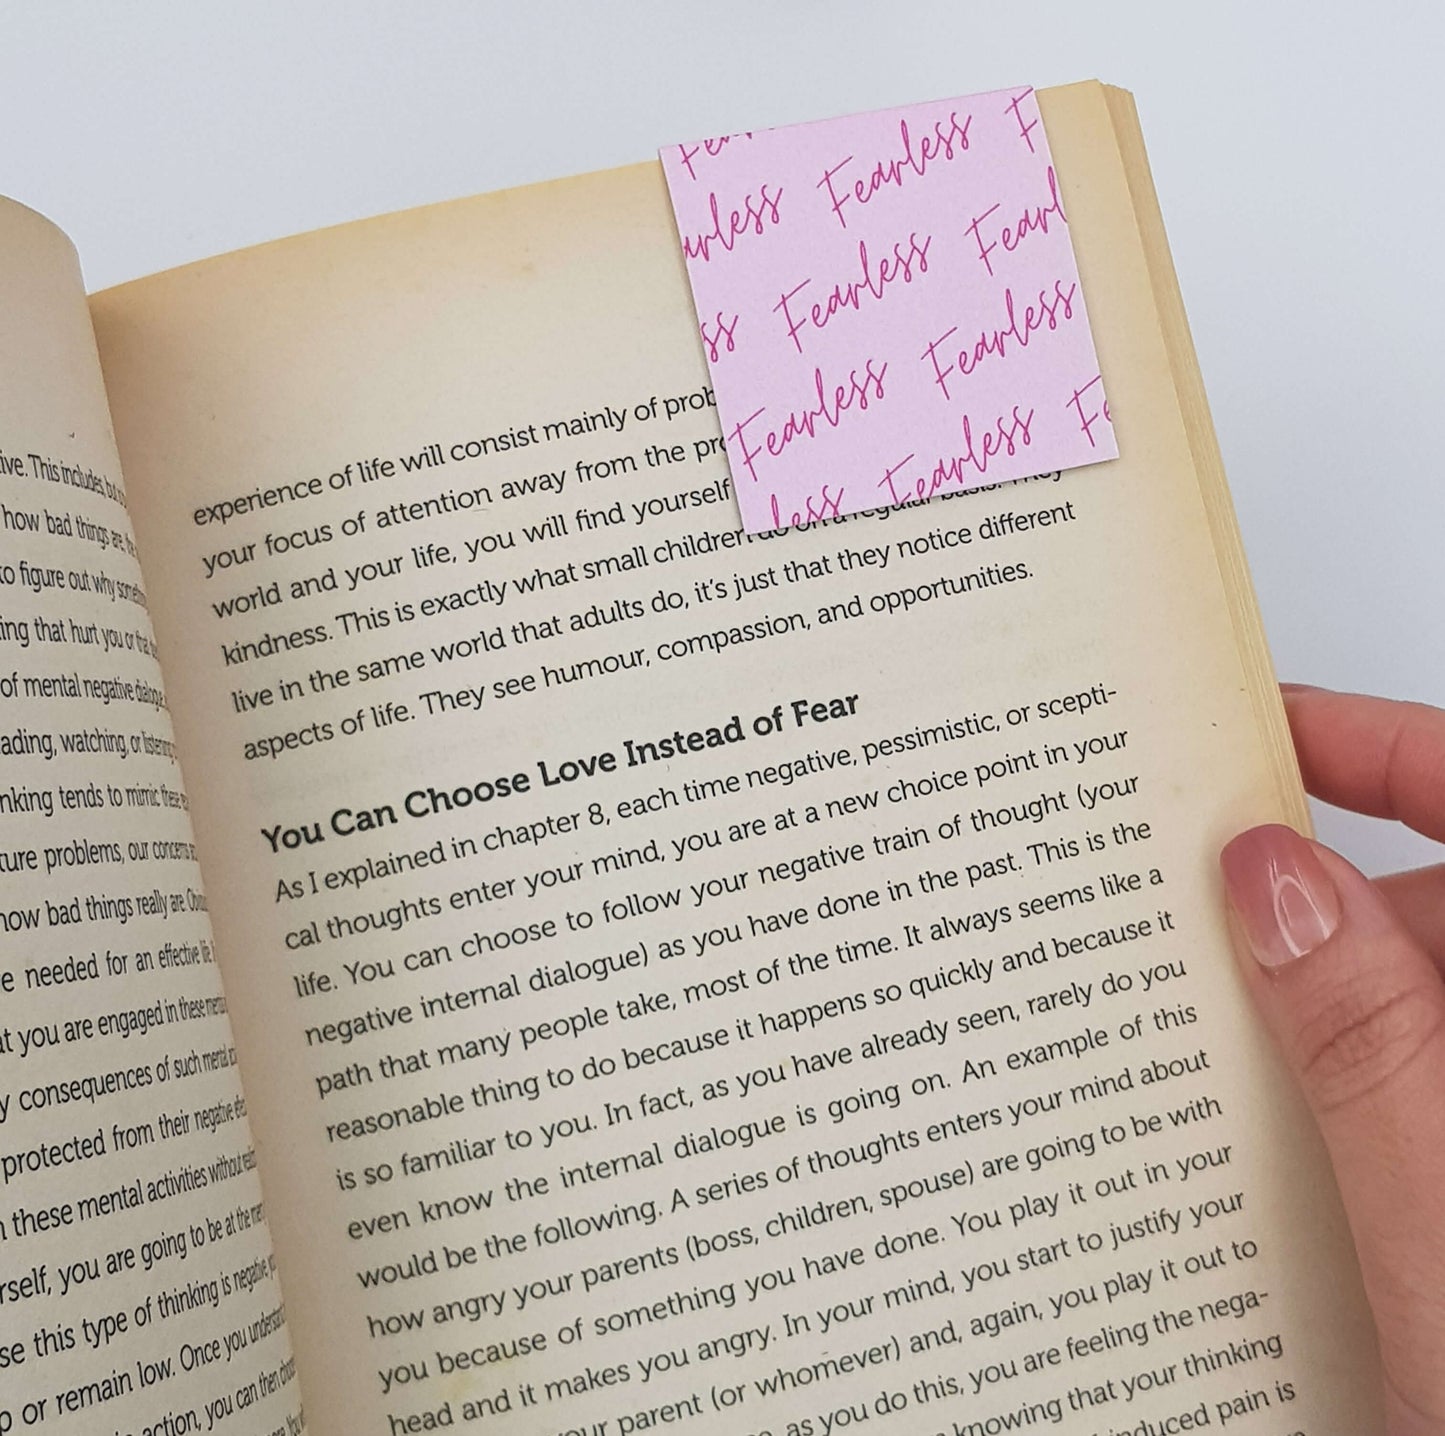 Fearless F
Fearless
Fearless Fearl
Fearless Fearless
less Fearless Fe
ive. This includes,
how bad things are,
to figure out why
ing that hurt you or that
of mental negative dialogue
ading, watching, or listening
nking tends to mimic these
ture problems, our concerns
how bad things really are.
e needed for an effective life.
at you are engaged in these
y consequences of such mental
protected from their negative
n these mental activities without
rself, you are going to be at the
se this type of thinking is negative
p or remain low. Once you understand
action, you can then
experience of life will consist mainly of prob
your focus of attention away from the pro
world and your life, you will find yourself
kindness. This is exactly what small children do on a regular basis. They
live in the same world that adults do, it's just that they notice different
aspects of life. They see humour, compassion, and opportunities.
You Can Choose Love Instead of Fear
As I explained in chapter 8, each time negative, pessimistic, or scepti-
cal thoughts enter your mind, you are at a new choice point in your
life. You can choose to follow your negative train of thought (your
negative internal dialogue) as you have done in the past. This is the
path that many people take, most of the time. It always seems like a
reasonable thing to do because it happens so quickly and because it
is so familiar to you. In fact, as you have already seen, rarely do you
even know the internal dialogue is going on. An example of this
would be the following. A series of thoughts enters your mind about
how angry your parents (boss, children, spouse) are going to be with
you because of something you have done. You play it out in your
head and it makes you angry. In your mind, you start to justify your
our parent (or whomever) and, again, you play it out to
as you do this, you are feeling the nega-
knowing that your thinking
induced pain is